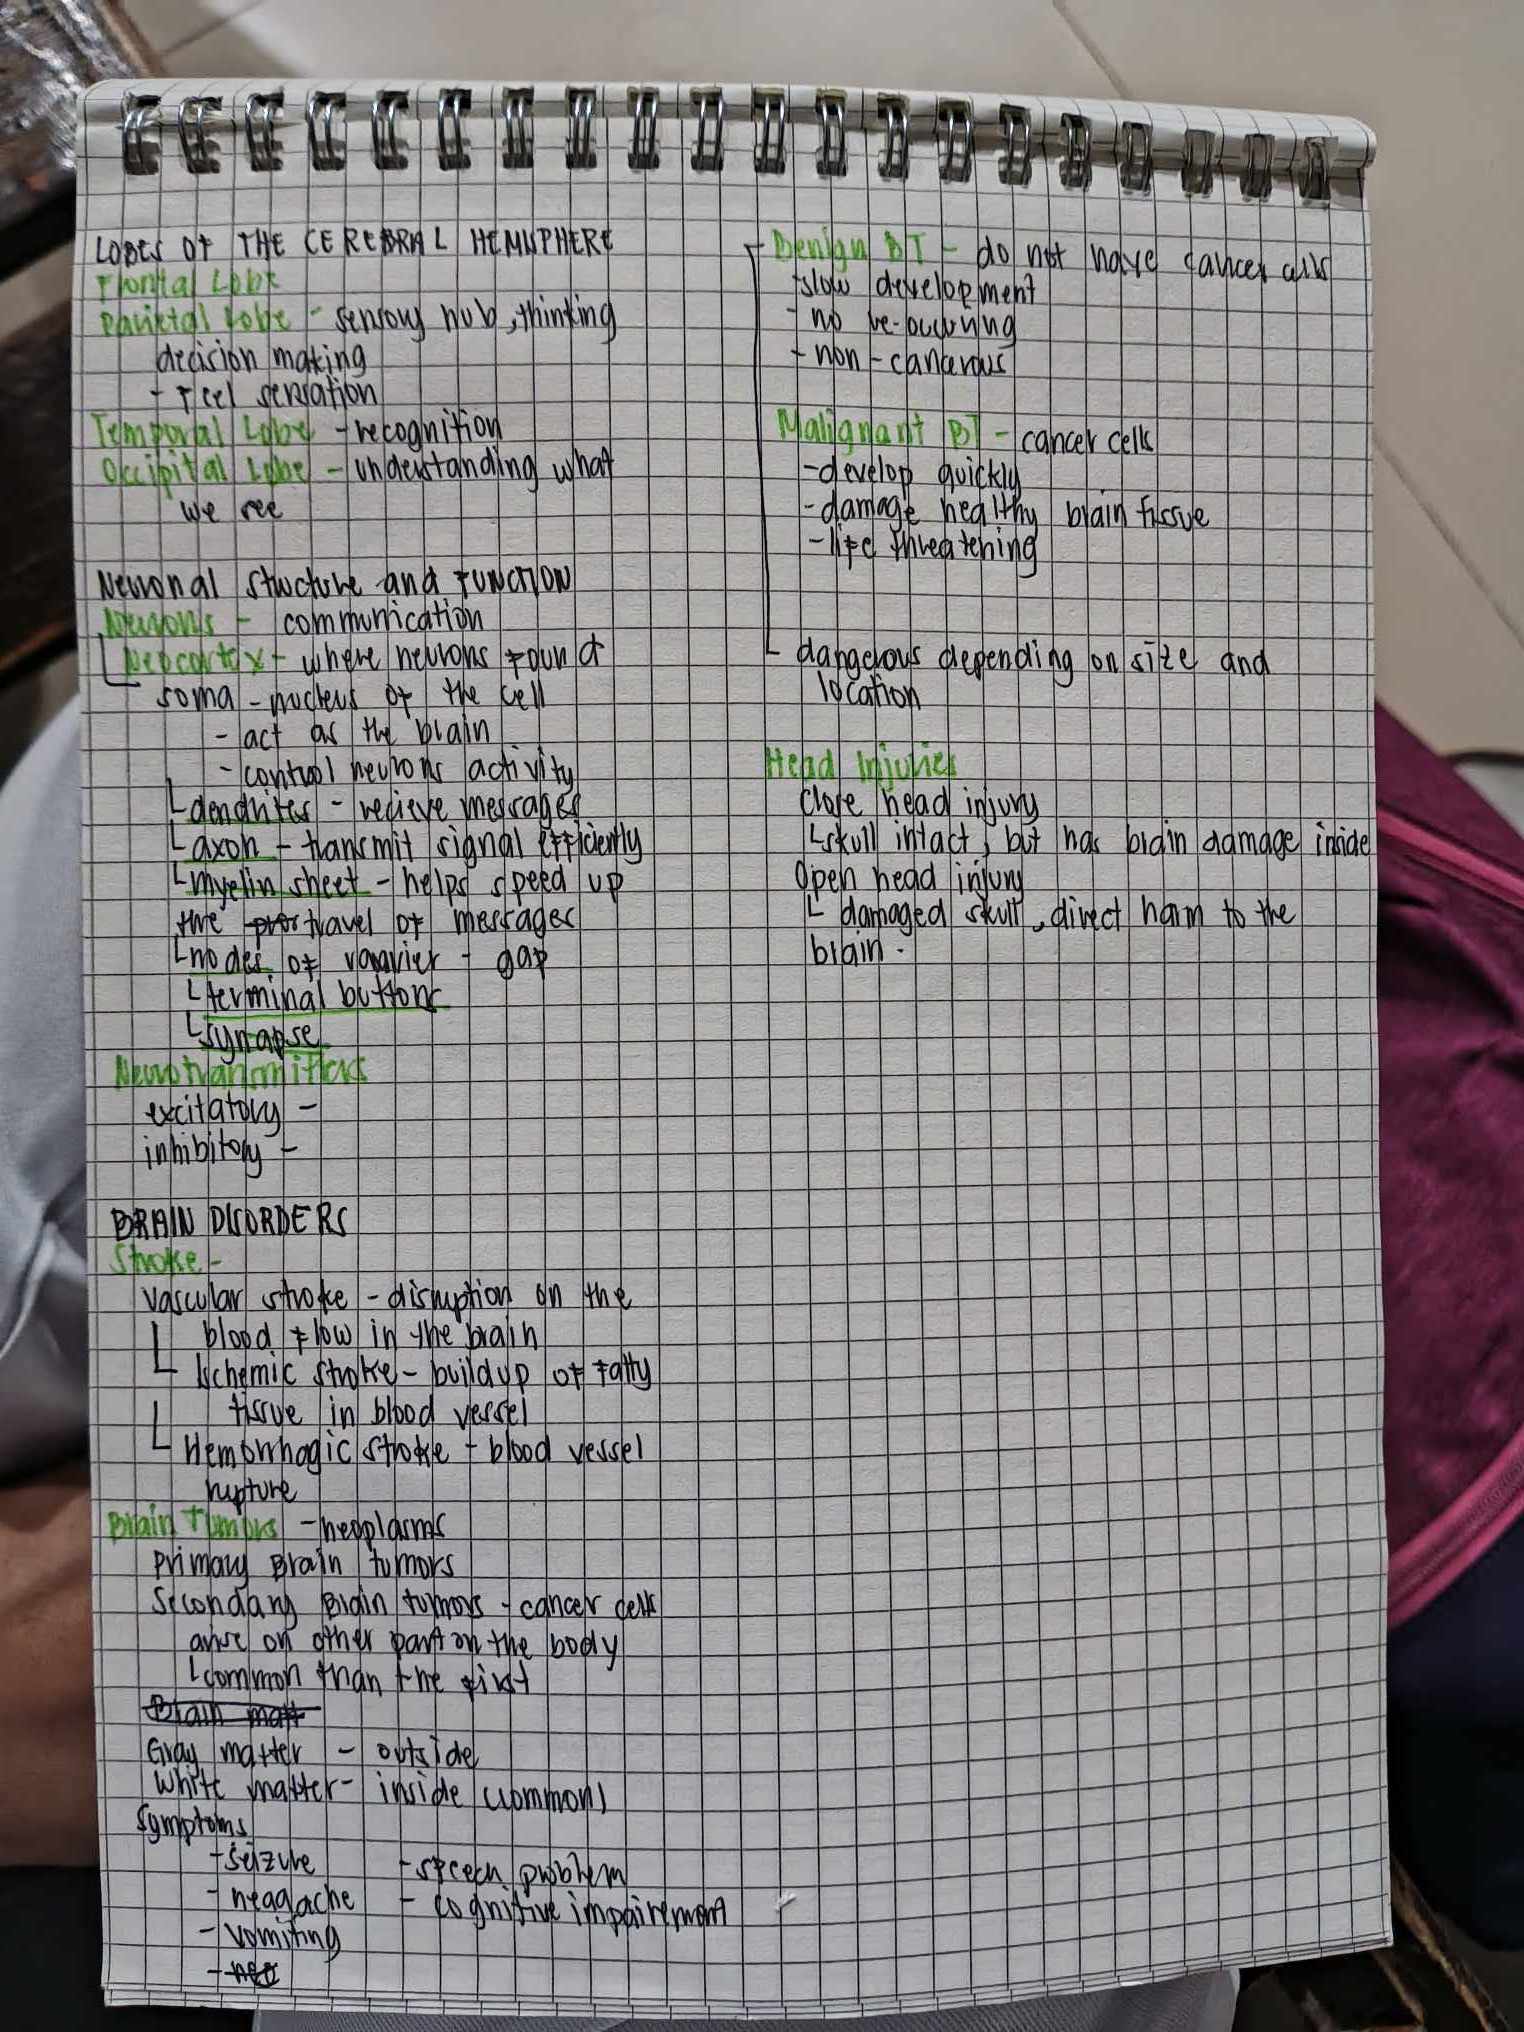 LOBES OF THE CEREBRAL HEMISPHERE
Frontal Lobe
Parietal Lobe - sensory hub, thinking
decision making
- feel sensation
Temporal Lobe - recognition
Occipital Lobe - understanding what
we see
Neuronal Structure and FUNCTION
Neurons - communication
Neocortex - where neurons found
soma - nucleus of the cell
- act as the brain
- control neurons activity
dendrites - recieve messages
axon - transmit signal efficiently
myelin sheet - helps speed up
the travel of messages
nodes of ranvier - gap
terminal buttons
synapse
Neurotransmitters
excitatory -
inhibitory -
BRAIN DISORDERS
Stroke -
vascular stroke - disruption on the
blood flow in the brain
Ischemic stroke - buildup of fatty
tissue in blood vessel
Hemorrhagic stroke - blood vessel
rupture
Brain Tumors - neoplasms
Primary Brain tumors
Secondary Brain tumors - cancer cells
arise on other part on the body
common than the first
Brain matt
Gray matter - outside
White matter - inside (common)
Symptoms
- seizure - speech problem
- headache - cognitive impairement
- vomiting
Benign BT - do not have cancer cells
- slow development
- no re-occuring
- non-cancerous
Malignant BT - cancer cells
- develop quickly
- damage healthy brain tissue
- life threatening
dangerous depending on size and
location
Head Injuries
Close head injury
skull intact, but has brain damage inside
Open head injury
damaged skull, direct harm to the
brain.